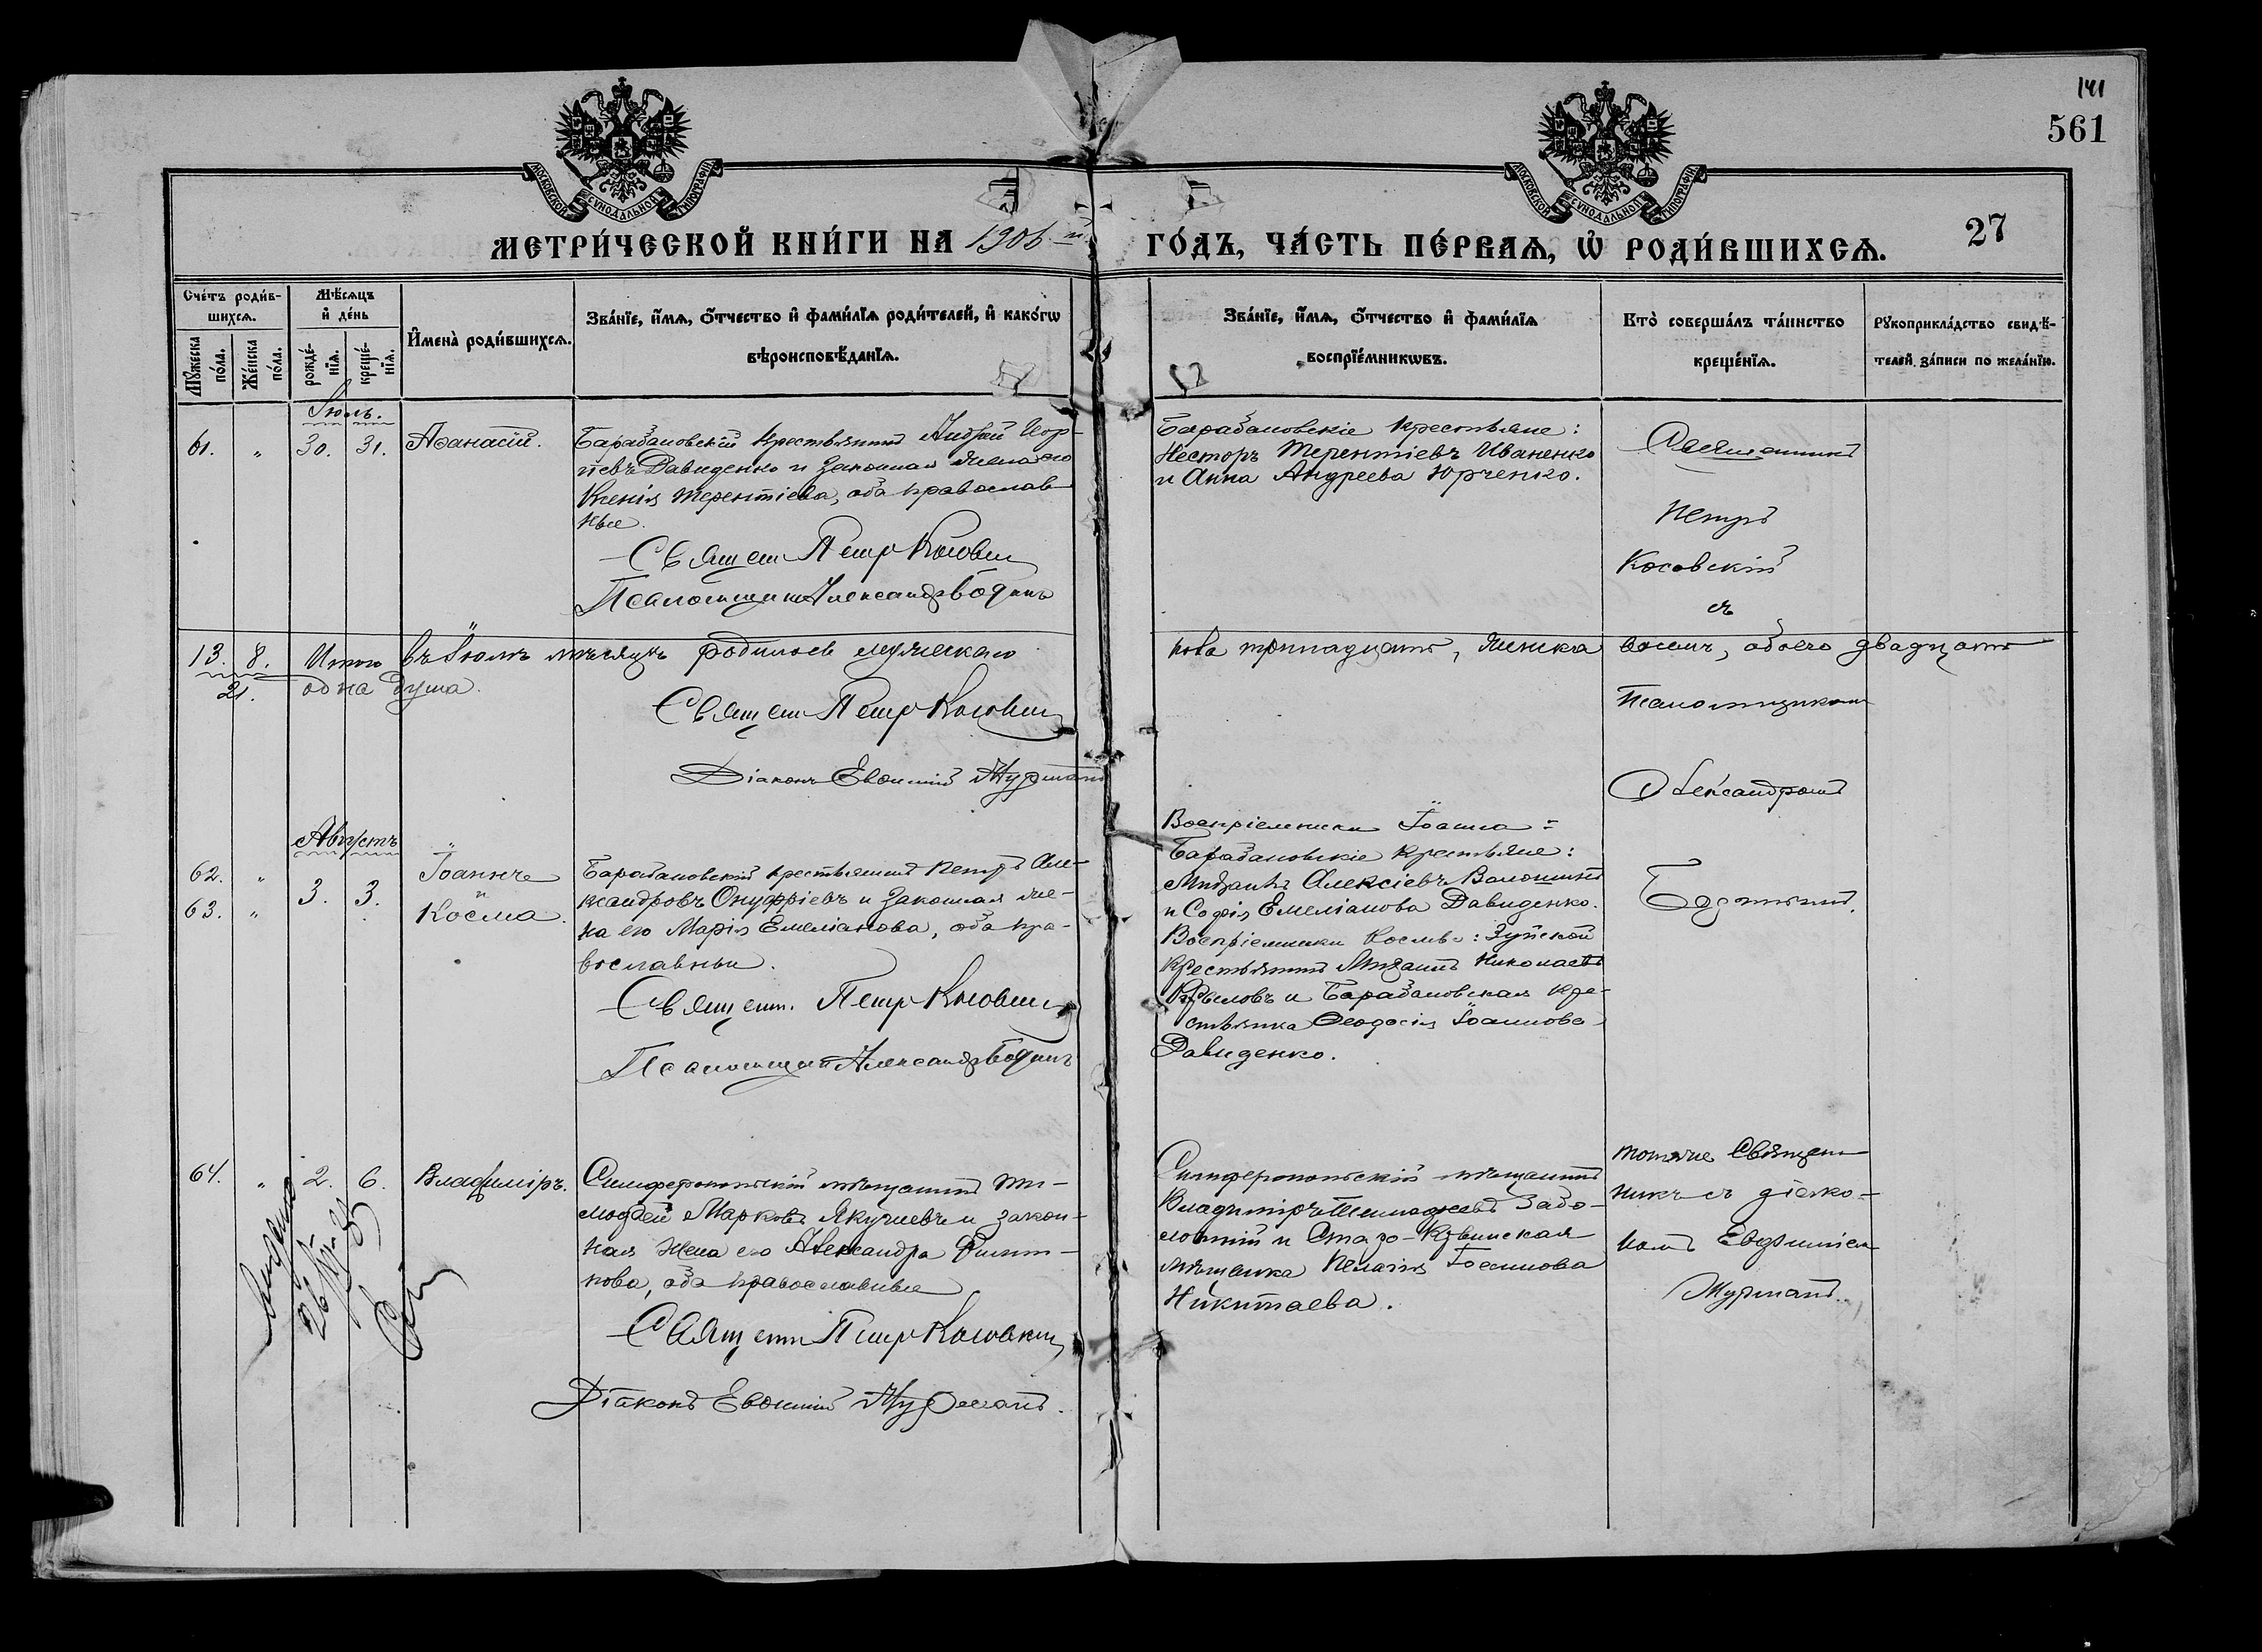 141
561
27
МОСКОВСКОЙ СѴНОДАЛЬНОЙ ТИПОГРАФІИ
МОСКОВСКОЙ СѴНОДАЛЬНОЙ ТИПОГРАФІИ
МЕТРИ́ЧЕСКОЙ КНИ́ГИ НА 1906-й ГО́ДЪ, ЧА́СТЬ ПЕ́РВАѦ, Ѡ҆ РОДИ́ВШИХСѦ.
Сче́тъ роди́в-
шихсѧ.
Мꙋ́жеска по́ла.
Же́нска по́ла.
Мѣ́сѧцъ
и҆ де́нь
рожде́-
нїѧ.
креще́-
нїѧ.
И҆мена̀ роди́вшихсѧ.
Зва́нїе, и҆́мѧ, ѻ҆́тчество и҆ фами́лїѧ роди́телей, и҆ како́гѡ
вѣроисповѣ́данїѧ.
Зва́нїе, и҆́мѧ, ѻ҆́тчество и҆ фами́лїѧ
воспрїе́мникѡвъ.
Кто̀ соверша́лъ та́инство
креще́нїѧ.
Рꙋкоприкла́дство свидѣ́-
телей за́писи по жела́нїю.
Іюль.
61. " 30. 31. Аѳанасій.
Барабановскій крестьянинъ Андрей Иор-
тевъ Давиденко и законная жена его
Ксенія Терентіева, оба православ-
ные.
Священ Петр Косовский
Псаломщик Александр Бодянъ
Барабановскіе крестьяне:
Несторъ Терентіевъ Иваненко
и Анна Андреева Юрченко.
Священникъ
Петръ
Косовскій
съ
13. 8. Итого въ Іюлѣ мѣсяцѣ родилось мужеского пола тринадцать, женска восемь, обоего двадцать
21. одна душа.
Священ Петр Косовский
Діаконъ Евѳимій Мурманъ
Псаломщикомъ
Александромъ
Августъ
62. " 3. 3. Іоаннъ
и
63. " Косма.
Барабановскій крестьянинъ Петръ Але-
ксандровъ Онуфріевъ и законная же-
на его Марія Емеліанова, оба пра-
вославные.
Священ. Петр Косовский
Псаломщик Александр Бодянъ
Воспріемники Іоанна:
Барабановскіе крестьяне:
Михаилъ Алексіевъ Волошинъ
и Софія Емеліанова Давиденко.
Воспріемники Космы: Зуйской
крестьянинъ Михаилъ Николаевъ
Крыловъ и Барабановская кре-
стьянка Ѳеодосія Іоаннова
Давиденко.
Бодянымъ.
64. " 2. 6. Владиміръ.
Симферопольскій мѣщанинъ Ти-
моѳей Марковъ Якушевъ и закон-
ная жена его Александра Филип-
пова, оба православные
Священ Петр Косовский
Діаконъ Евѳимій Мурманъ.
Симферопольскій мѣщанинъ
Владиміръ Забо-
лотній и Старо-Крымская
мѣщанка Пелагія Іоаннова
Никитаева.
тотже Священ-
никъ съ діако-
номъ Евфиміем
Мурманъ.